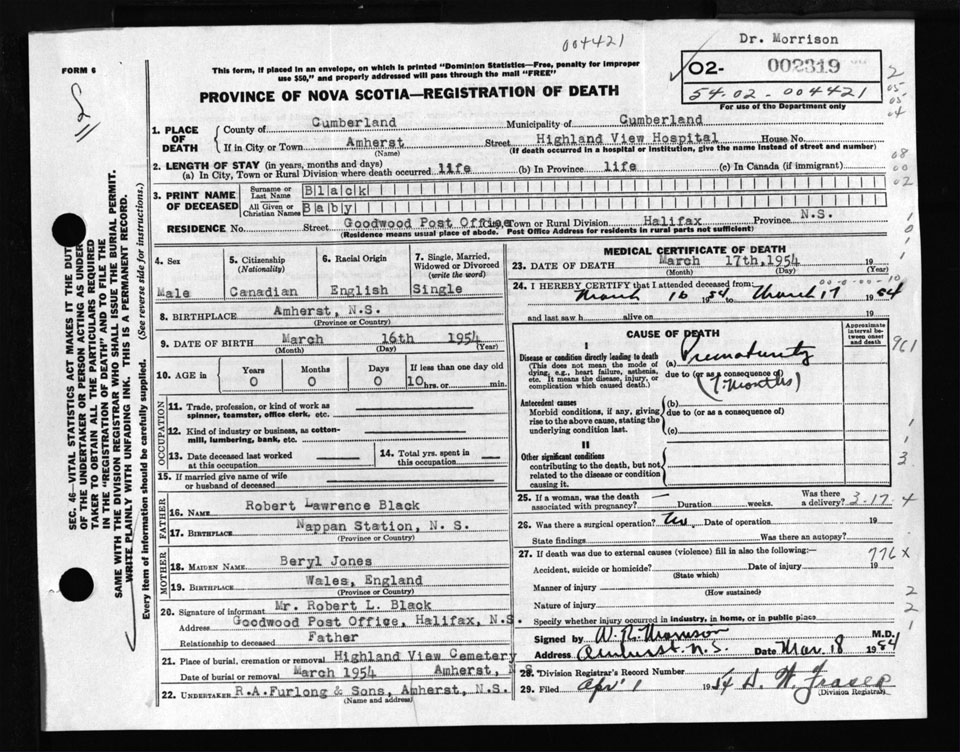 004421
Dr. Morrison
FORM 6
This form, if placed in an envelope, on which is printed "Dominion Statistics—Free, penalty for improper
use $50," and properly addressed will pass through the mail "FREE"
02- 002319
54.02-004421
For use of the Department only
PROVINCE OF NOVA SCOTIA—REGISTRATION OF DEATH
1. PLACE OF DEATH
County of Cumberland Municipality of Cumberland
If in City or Town Amherst Street Highland View Hospital House No.
(Name) (If death occurred in a hospital or institution, give the name instead of street and number)
2. LENGTH OF STAY (in years, months and days)
(a) In City, Town or Rural Division where death occurred life (b) In Province life (c) In Canada (if immigrant)
3. PRINT NAME OF DECEASED
Surname or Last Name Black
All Given or Christian Names Baby
RESIDENCE No. Street Goodwood Post Office Town or Rural Division Halifax Province N.S.
(Residence means usual place of abode. Post Office Address for residents in rural parts not sufficient)
4. Sex
Male
5. Citizenship
(Nationality)
Canadian
6. Racial Origin
English
7. Single, Married,
Widowed or Divorced
(write the word)
Single
8. BIRTHPLACE Amherst, N.S.
(Province or Country)
9. DATE OF BIRTH March 16th 1954
(Month) (Day) (Year)
10. AGE in
Years 0
Months 0
Days 0
If less than one day old
10 hrs. or min.
OCCUPATION
11. Trade, profession, or kind of work as
spinner, teamster, office clerk, etc.
12. Kind of industry or business, as cotton-
mill, lumbering, bank, etc.
13. Date deceased last worked
at this occupation
14. Total yrs. spent in
this occupation
15. If married give name of wife
or husband of deceased
FATHER
16. NAME Robert Lawrence Black
17. BIRTHPLACE Nappan Station, N. S.
(Province or Country)
MOTHER
18. MAIDEN NAME Beryl Jones
19. BIRTHPLACE Wales, England
(Province or Country)
20. Signature of informant Mr. Robert L. Black
Address Goodwood Post Office, Halifax, N.S.
Relationship to deceased Father
21. Place of burial, cremation or removal Highland View Cemetery
Date of burial or removal March 1954 Amherst, N S
22. UNDERTAKER R.A.Furlong & Sons, Amherst, N.S.
(Name and address)
MEDICAL CERTIFICATE OF DEATH
23. DATE OF DEATH March 17th,1954 19
(Month) (Day) (Year)
24. I HEREBY CERTIFY that I attended deceased from:
March 16 1954 to March 17 1954
and last saw h alive on 19
CAUSE OF DEATH
Approximate
interval be-
tween onset
and death
I
Disease or condition directly leading to death
(This does not mean the mode of
dying, e.g., heart failure, asthenia,
etc. It means the disease, injury, or
complication which caused death.)
(a) Prematurity
due to (or as a consequence of)
(7 months)
Antecedent causes
Morbid conditions, if any, giving
rise to the above cause, stating the
underlying condition last.
(b)
due to (or as a consequence of)
(c)
II
Other significant conditions
contributing to the death, but not
related to the disease or condition
causing it.
25. If a woman, was the death
associated with pregnancy? Duration weeks. Was there
a delivery?
3.17.4
26. Was there a surgical operation? Date of operation 19
State findings Was there an autopsy?
27. If death was due to external causes (violence) fill in also the following:—
Accident, suicide or homicide? Date of injury 19
(State which)
776 X
Manner of injury
(How sustained)
Nature of injury
Specify whether injury occurred in industry, in home, or in public place
Signed by W. R. Morrison M.D.
Address Amherst. N.S. Date Mar. 18 1954
28. Division Registrar's Record Number
29. Filed Apr 1 1954 W. Fraser
(Division Registrar)
961
SEC. 46—VITAL STATISTICS ACT MAKES IT THE DUTY
OF THE UNDERTAKER OR PERSON ACTING AS UNDER-
TAKER TO OBTAIN ALL THE PARTICULARS REQUIRED
IN THE "REGISTRATION OF DEATH" AND TO FILE THE
SAME WITH THE DIVISION REGISTRAR WHO SHALL ISSUE THE BURIAL PERMIT.
WRITE PLAINLY WITH UNFADING INK. THIS IS A PERMANENT RECORD.
Every item of information should be carefully supplied. (See reverse side for instructions.)